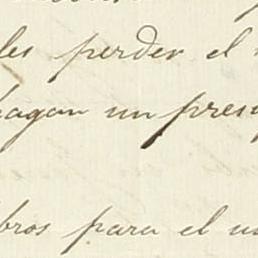 les perder el
hagan un pres
bros para el us